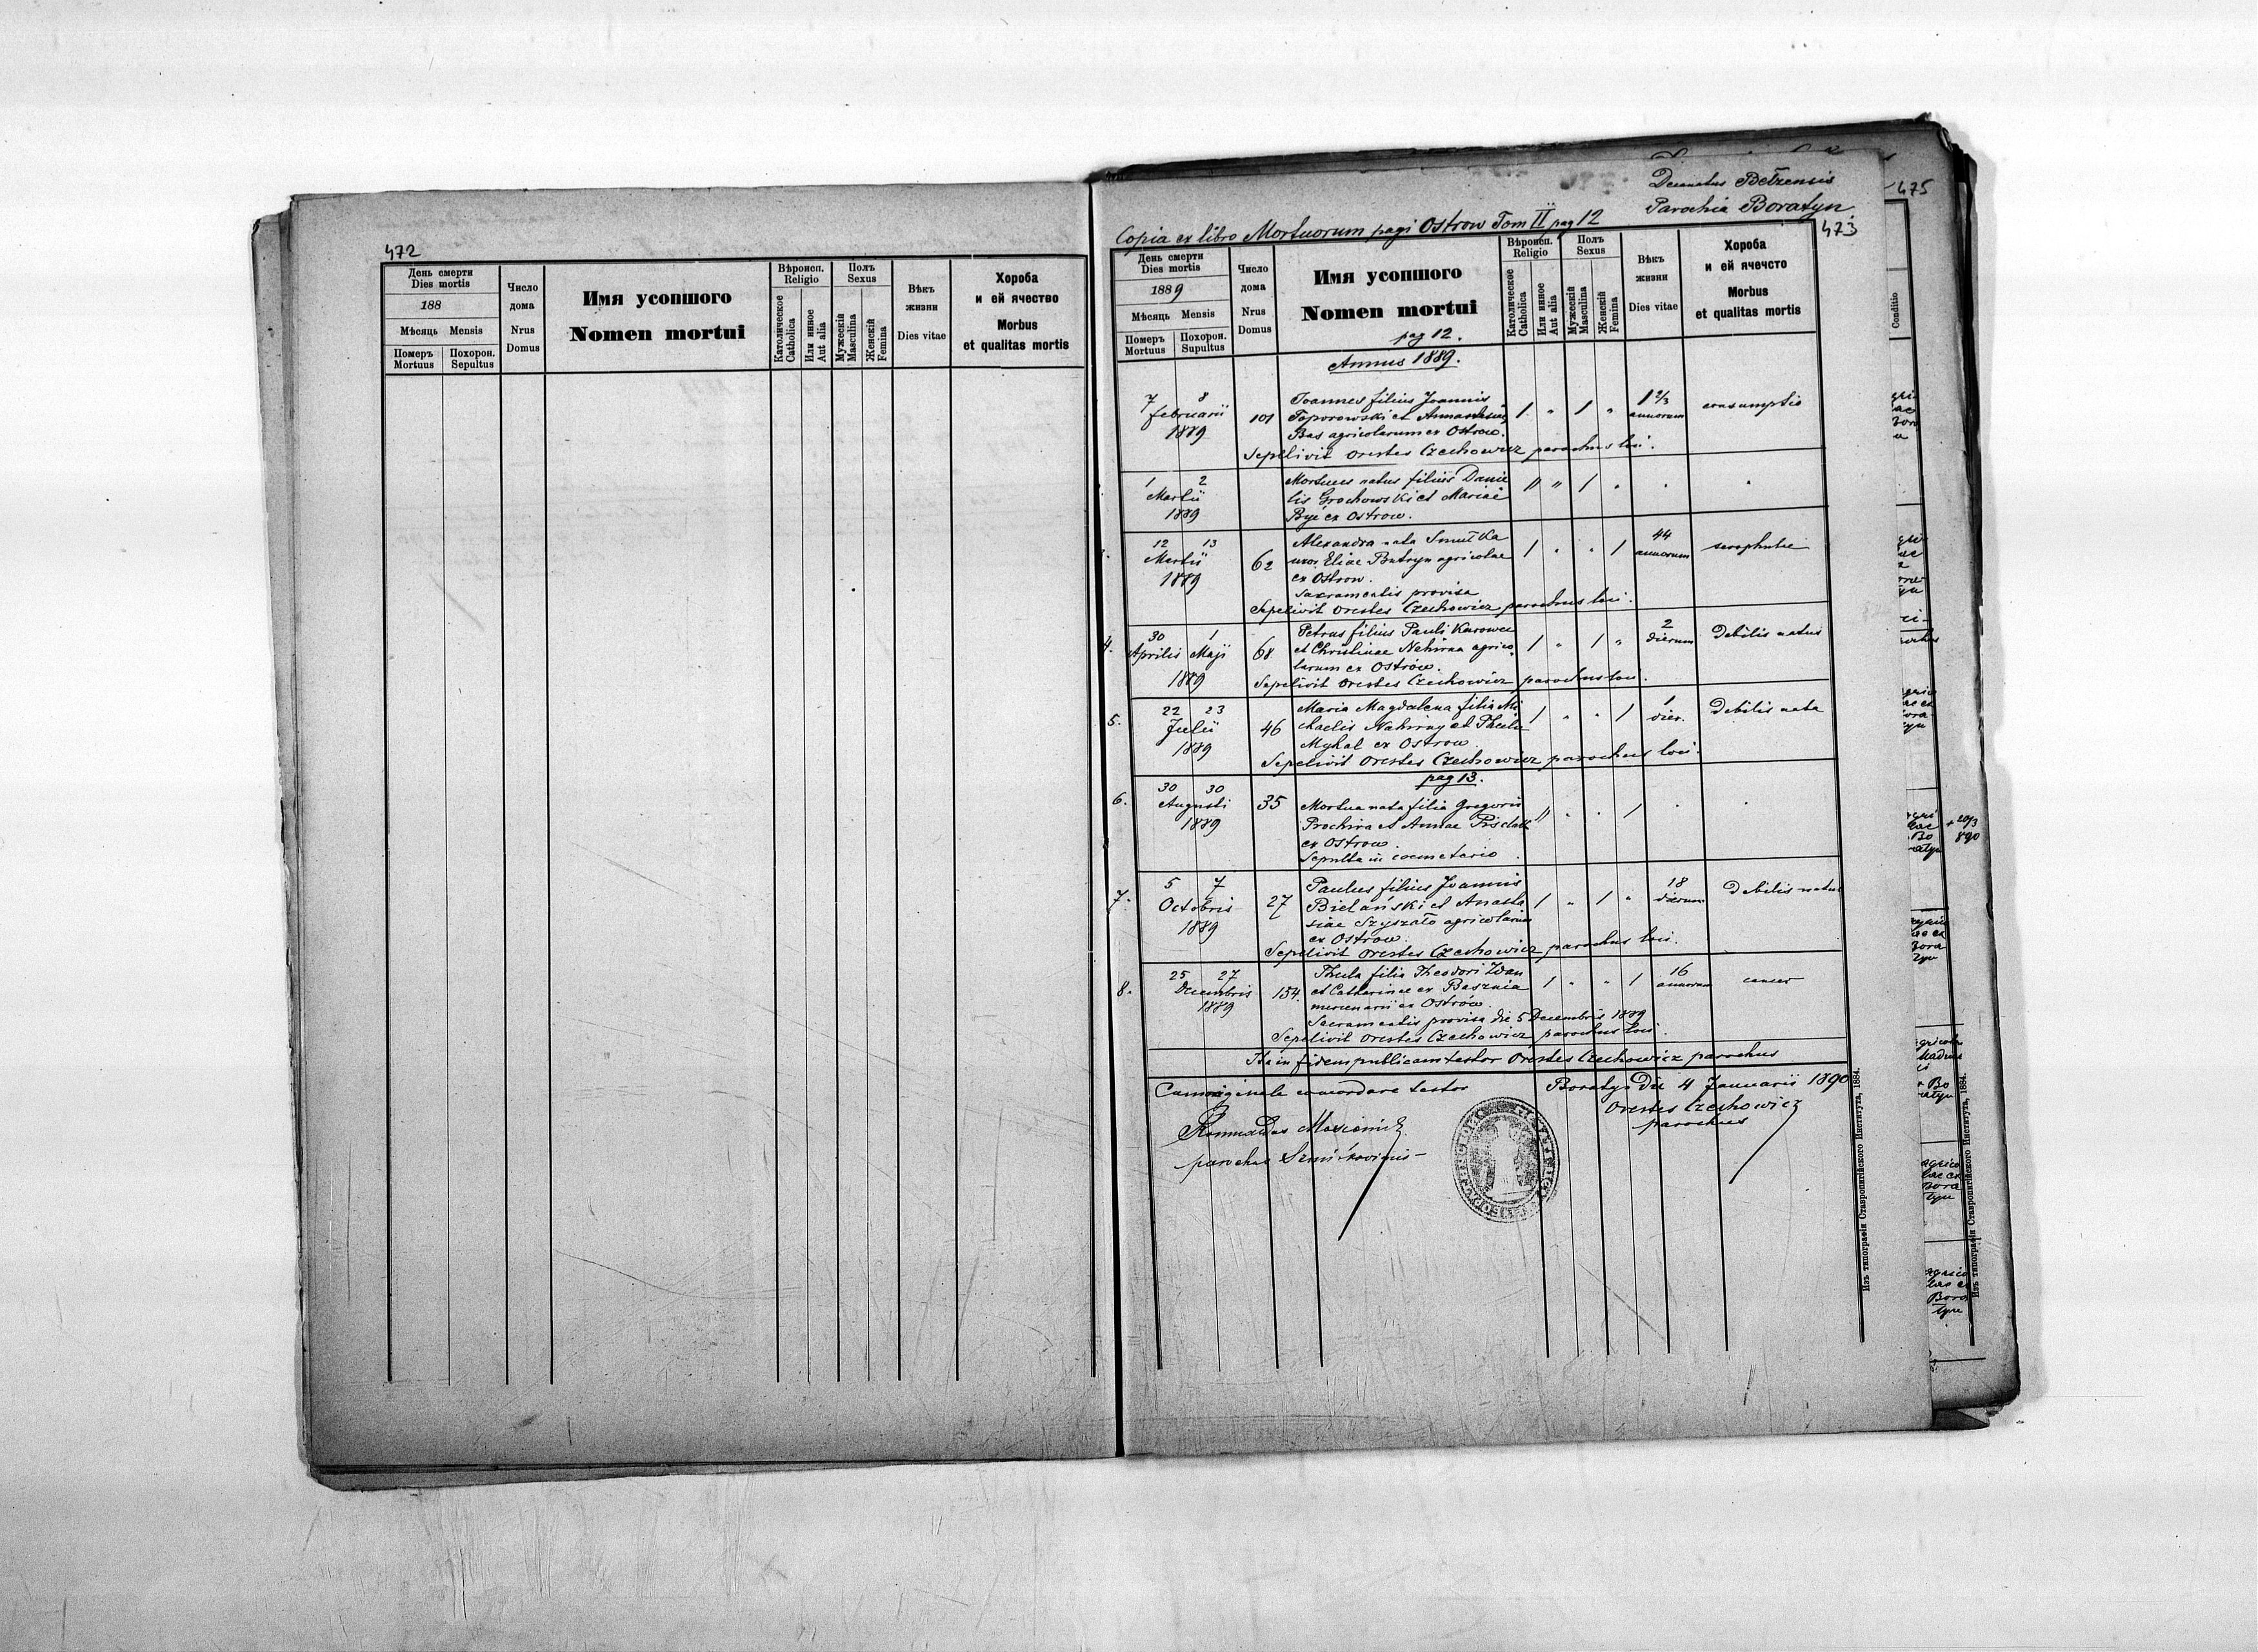 472
День смерти
Dies mortis
188
Мѣсяць Mensis
Померъ Похорон.
Mortuus Sepultus
Число
дома
Nrus
Domus
Имя усопшого
Nomen mortui
Вѣроисп.
Religio
Католическое
Catholica
Или инное
Aut alia
Полъ
Sexus
Мужескій
Masculina
Женскій
Femina
Вѣкъ
жизни
Dies vitae
Хороба
и ей ячество
Morbus
et qualitas mortis
Decanatus Bełzensis
Parochia Boratyn
Copia ex libro Mortuorum pagi Ostrow Tom II pag 12
473
День смерти
Dies mortis
1889
Мѣсяць Mensis
Померъ Похорон.
Mortuus Supultus
Число
дома
Nrus
Domus
Имя усопшого
Nomen mortui
pag 12.
Вѣроисп.
Religio
Католическое
Catholica
Или инное
Aut alia
Полъ
Sexus
Мужескій
Masculina
Женскій
Femina
Вѣкъ
жизни
Dies vitae
Хороба
и ей ячечсто
Morbus
et qualitas mortis
Annus 1889.
7 8 Joannes filius Joannis 1 " 1 " 1 2/3 consumptio
Februarii 101 Toporowski et annorum
1889 Bas agricolarum ex Ostrow.
Sepelivit Orestes Czechowicz parochus loci.
1 2 Mortuus natus filius Danie " " 1 "
Martii lis Grochowski et Mariae
1889 Być ex Ostrow.
12 13 Alexandra nata 1 " " 1 44
Martii 62 uxor Eliae Butryn agricolae annorum
1889 ex Ostrow.
Sacramentis provisa
Sepelivit Orestes Czechowicz parochus loci.
4. 30 1 Petrus filius Pauli Karowec 1 " 1 " 2 debilis natus
Aprilis Maji 68 et Christinae Nahirna agrico dierum
1889 larum ex Ostrów.
Sepelivit Orestes Czechowicz parochus loci.
5. 22 23 Maria Magdalena filia Mi 1 " " 1 1 debilis nata
Julii 46 chaelis Nahirny et Theclae dier.
1889 Mykal ex Ostrow
Sepelivit Orestes Czechowicz parochus loci.
pag 13.
6. 30 30
Augusti 35 Mortua nata filia Gregorii " " " 1
1889 Prochira et Annae
ex Ostrow
Sepulta in coemeterio
7. 5 7 Paulus filius Joannis 1 " 1 " 18 debilis natus
Octobris 27 Bielański et Anasta dierum
1889 siae Szyszało agricolarum
ex Ostrow
Sepelivit Orestes Czechowicz parochus loci.
8. 25 27 Thecla filia Theodori Iwan 1 " " 1 16 cancer
Decembris 154. et Catharinae ex Basznia annorum
1889 mercenarii ex Ostrów.
Sacramentis provisa die 5 Decembris 1889
Sepelivit Orestes Czechowicz parochus loci.
Ita in fidem publicam testor Orestes Czechowicz parochus
Cum originale concordare testor
Boratyn die 4 Januarii 1890
Orestes Czechowicz
parochus
Изъ типографіи Ставропигійского Института, 1884.
475
Conditio
Изъ типографіи Ставропигійского Института, 1884.